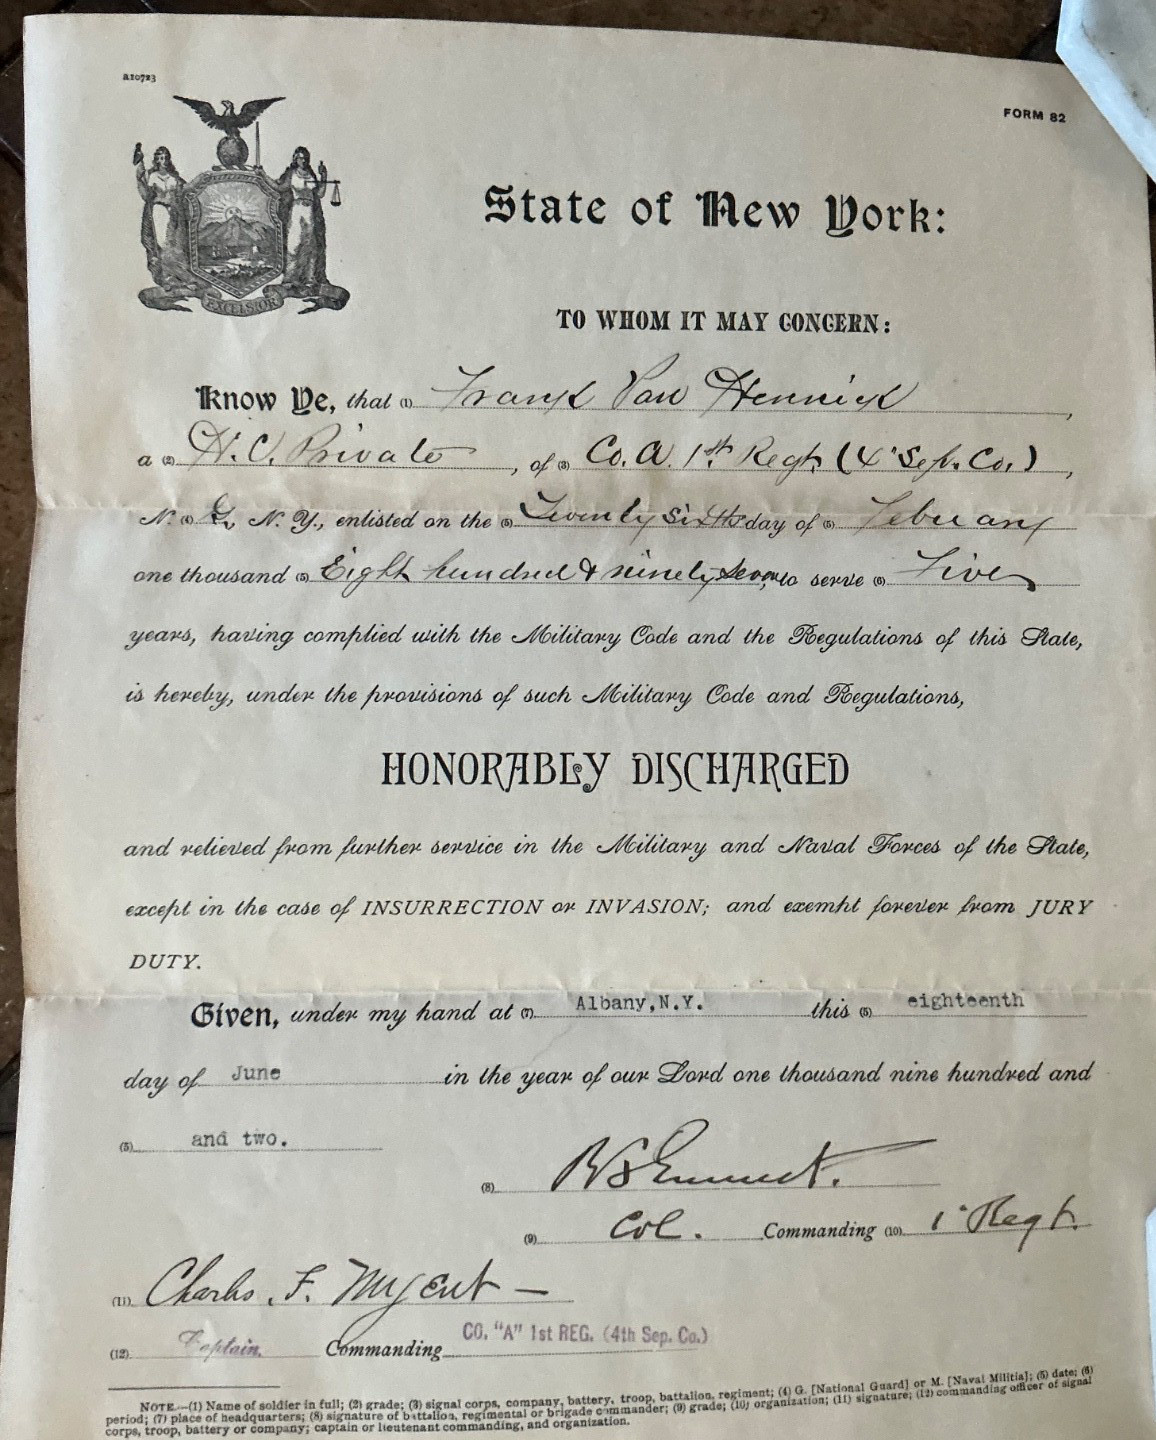 a10723
FORM 82
EXCELSIOR
State of New York:
TO WHOM IT MAY CONCERN:
Know Ye, that (1) Frank Van Hennick,
a (2) H.C. Private, of (3) Co. A. 1st. Regt (4" Sep. Co.),
N. (4) G., N. Y., enlisted on the (5) Twenty Sixth day of (5) Febuary
one thousand (5) Eight hundred & ninety Seven, to serve (6) Five
years, having complied with the Military Code and the Regulations of this State,
is hereby, under the provisions of such Military Code and Regulations,
HONORABLY DISCHARGED
and relieved from further service in the Military and Naval Forces of the State,
except in the case of INSURRECTION or INVASION; and exempt forever from JURY
DUTY.
Given, under my hand at (7) Albany, N.Y. this (5) eighteenth
day of June in the year of our Lord one thousand nine hundred and
(5) and two.
(8) Emmet.
(9) Col. Commanding (10) 1" Regt.
(11) Charles. F. Nugent —
(12) Captain. Commanding CO. "A" 1st REG. (4th Sep. Co.)
NOTE.—(1) Name of soldier in full; (2) grade; (3) signal corps, company, battery, troop, battalion, regiment; (4) G. [National Guard] or M. [Naval Militia]; (5) date; (6)
period; (7) place of headquarters; (8) signature of battalion, regimental or brigade commander; (9) grade; (10) organization; (11) signature; (12) commanding officer of signal
corps, troop, battery or company; captain or lieutenant commanding, and organization.